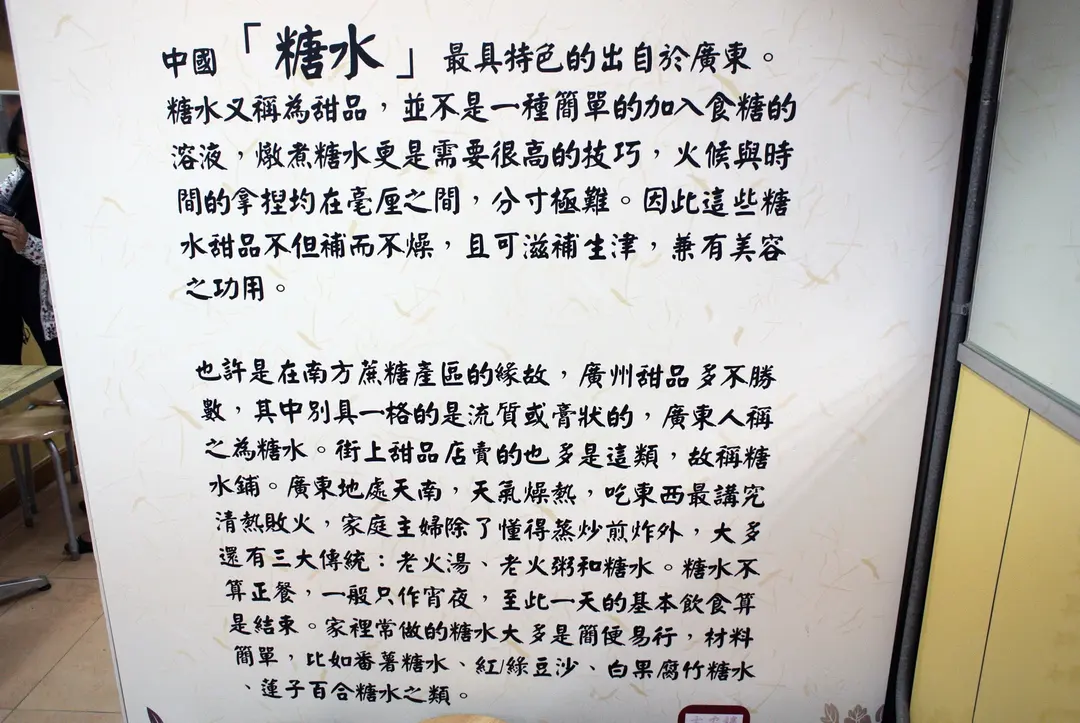 中國「糖水」最具特色的出自於廣東。
糖水又稱為甜品，並不是一種簡單的加入食糖的
溶液，燉煮糖水更是需要很高的技巧，火候與時
間的拿捏均在毫厘之間，分寸極難。因此這些糖
水甜品不但補而不燥，且可滋補生津，兼有美容
之功用。
也許是在南方蔗糖產區的緣故，廣州甜品多不勝
數，其中別具一格的是流質或膏狀的，廣東人稱
之為糖水。街上甜品店賣的也多是這類，故稱糖
水鋪。廣東地處天南，天氣燥熱，吃東西最講究
清熱敗火，家庭主婦除了懂得蒸炒煎炸外，大多
還有三大傳統：老火湯、老火粥和糖水。糖水不
算正餐，一般只作宵夜，至此一天的基本飲食算
是結束。家裡常做的糖水大多是簡便易行，材料
簡單，比如番薯糖水、紅/綠豆沙、白果腐竹糖水
、蓮子百合糖水之類。